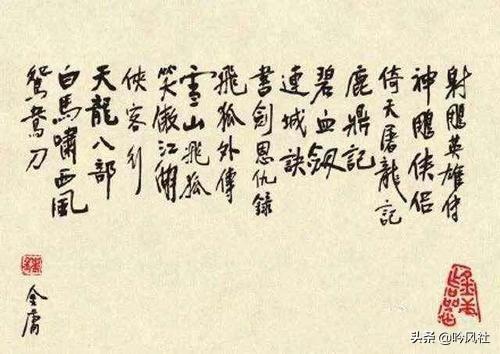 射鵰英雄傳
神鵰俠侶
倚天屠龍記
鹿鼎記
碧血劍
連城訣
書劍恩仇錄
飛狐外傳
雪山飛狐
笑傲江湖
俠客行
天龍八部
白馬嘯西風
鴛鴦刀
金庸
头条 @吟风社